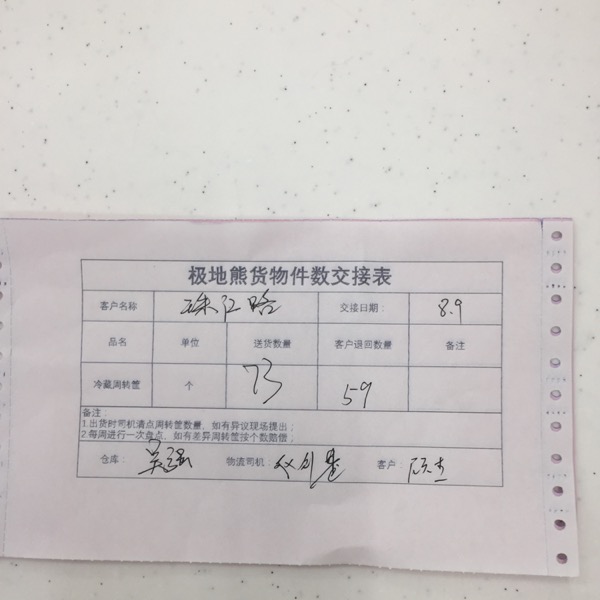 极地熊货物件数交接表
客户名称 珠江路 交接日期： 8.9
品名 单位 送货数量 客户退回数量 备注
冷藏周转筐 个 73 59
备注：
1.出货时司机清点周转筐数量，如有异议现场提出；
2.每周进行一次盘点，如有差异周转筐按个数赔偿；
仓库： 吴强 物流司机： 客户：